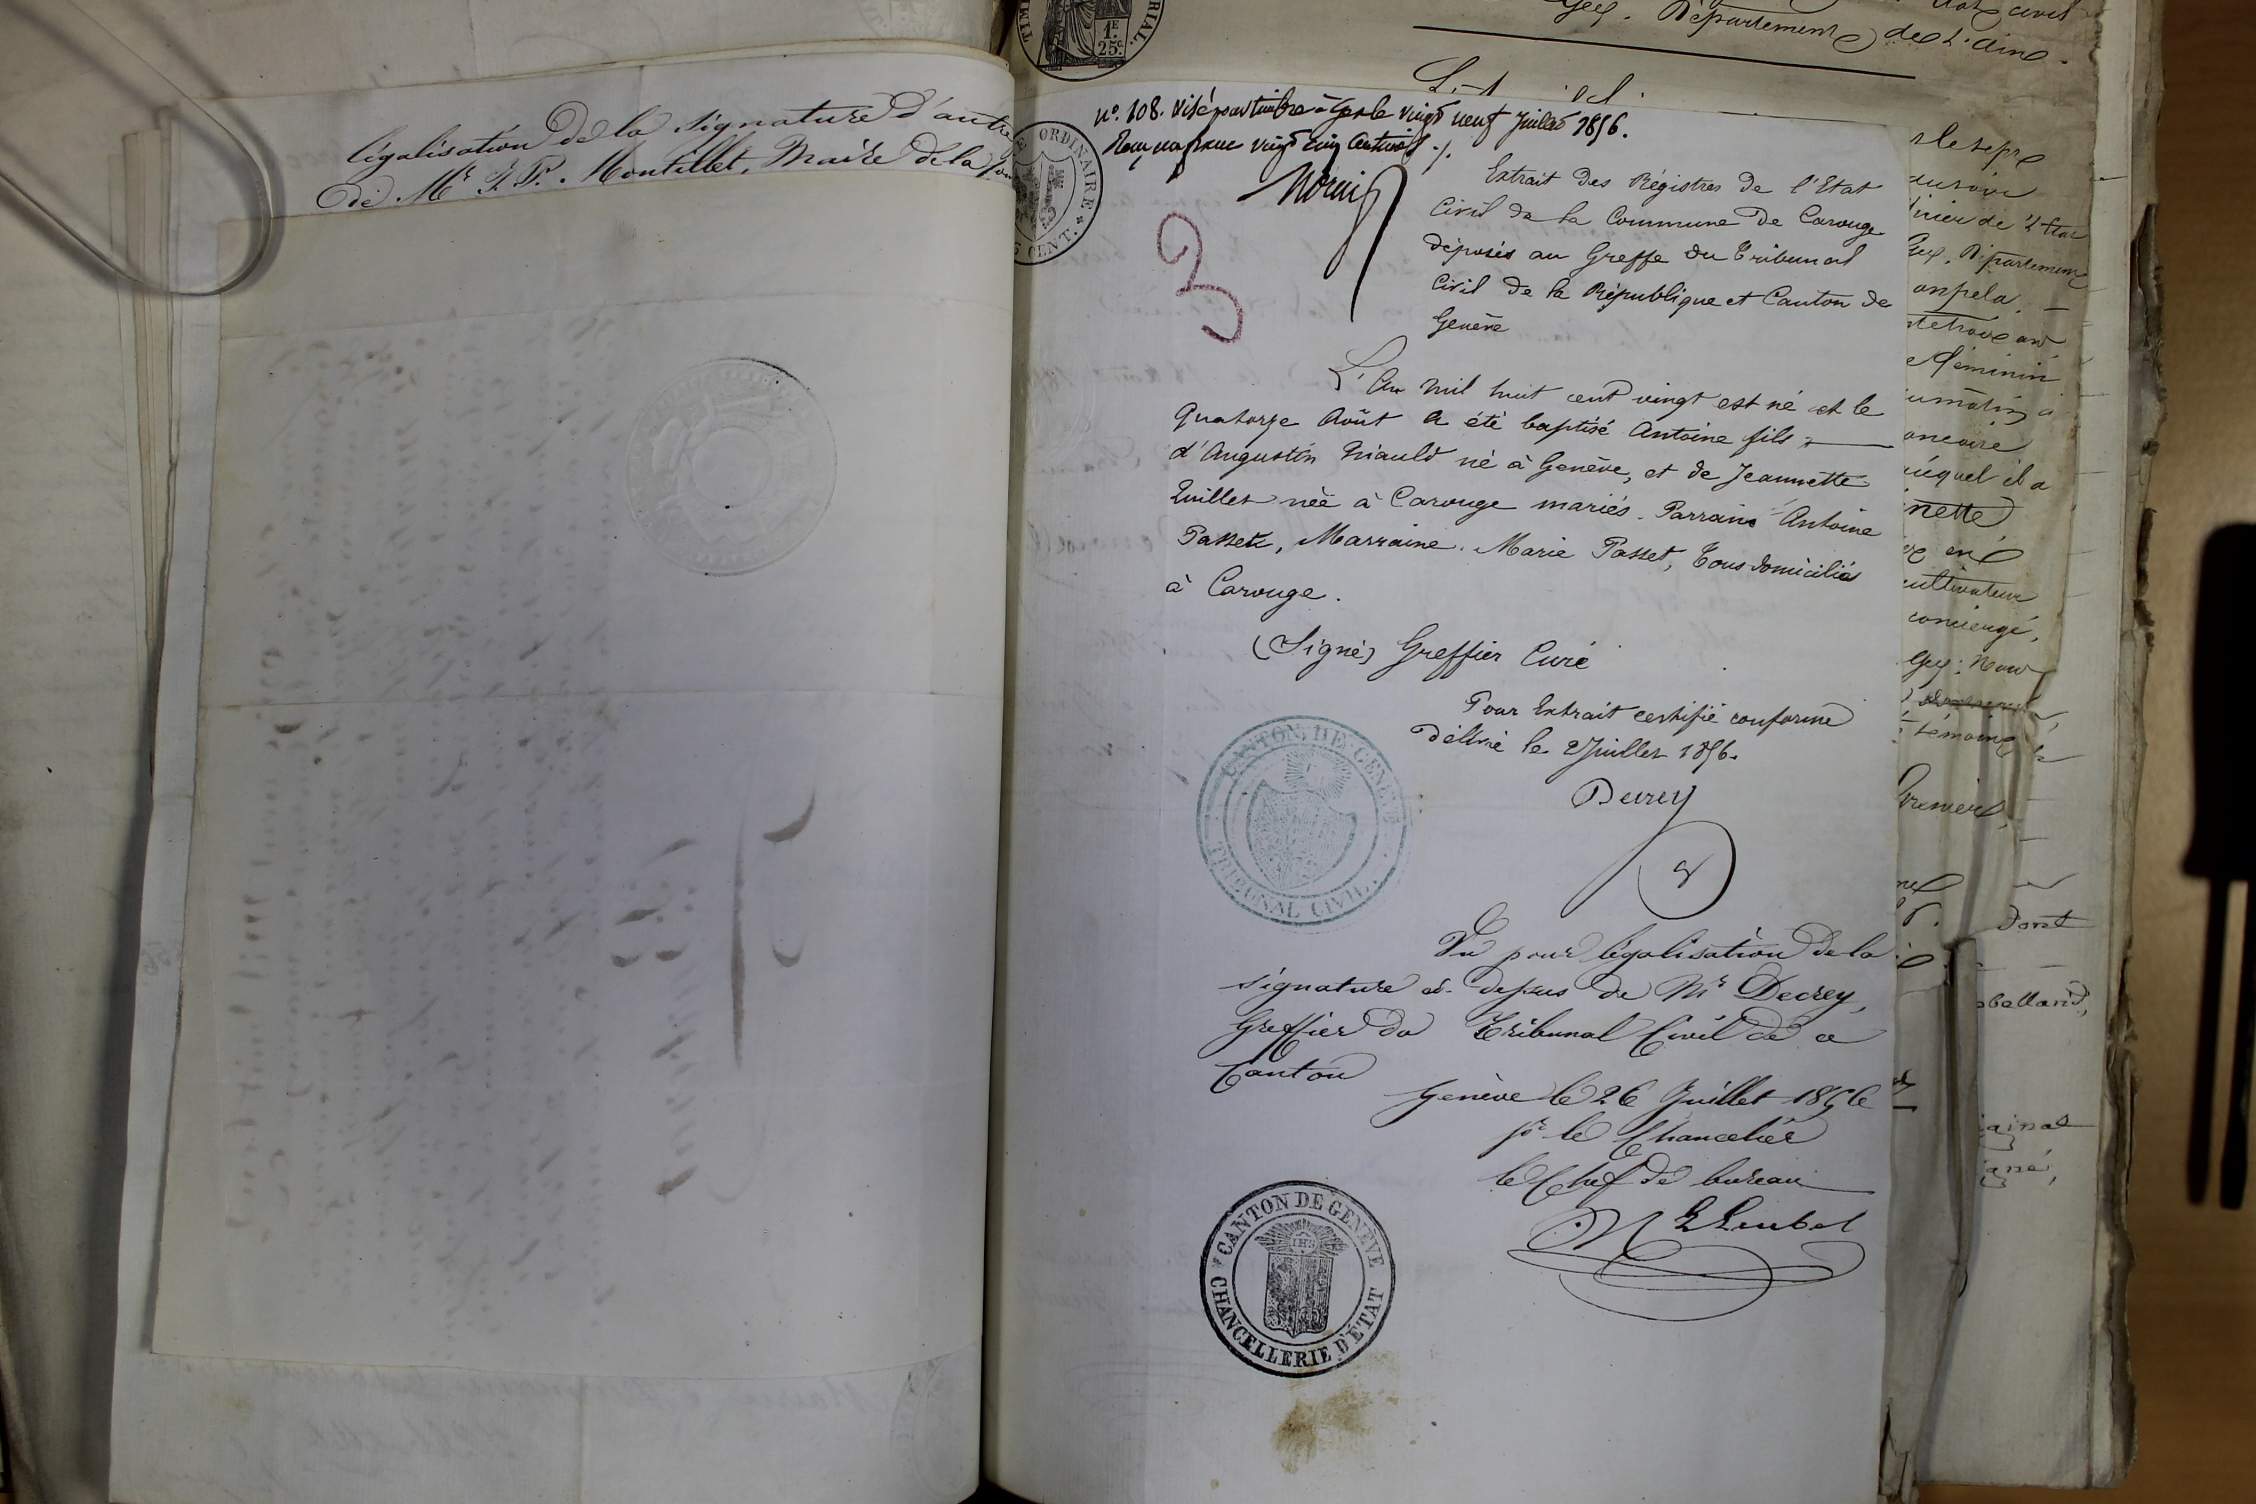 légalisation de la signature d'autre
de Mr J. P. Montillet, Maire de la
TIM
RIAL.
1F.
25c.
Gex. Département de l'Ain.
ORDINAIRE
CENT.
No. 108. Visé pour timbre à Gex le vingt neuf Juillet 1856.
Reçu un franc vingt cinq centimes ./.
3
Extrait des Régistres de l'Etat
Civil de la Commune de Carouge
déposés au Greffe du Tribunal
Civil de la République et Canton de
Genève
L'An mil huit cent vingt est né et le
quatorze Août a été baptisé Antoine fils
d'Augustin Miauld né à Genève, et de Jeannette
Quillet née à Carouge mariés. Parrain Antoine
Passet, Marraine Marie Passet, Tous domiciliés
à Carouge.
(Signé) Greffier Curé
Pour Extrait certifié conforme
Délivré le 2 Juillet 1856.
Decrey
CANTON DE GENEVE
TRIBUNAL CIVIL
Vu pour légalisation de la
signature ci-dessus de Mr Decrey,
Greffier du Tribunal Civil de ce
Canton
Genève le 26 Juillet 1856
pr le Chancelier
le Chef de bureau
CANTON DE GENÈVE
IHS
CHANCELLERIE D'ÉTAT
Gex, Département
féminin
auquel il a
nette
cultivateur
concierge,
Gex. Nous
témoins
dont